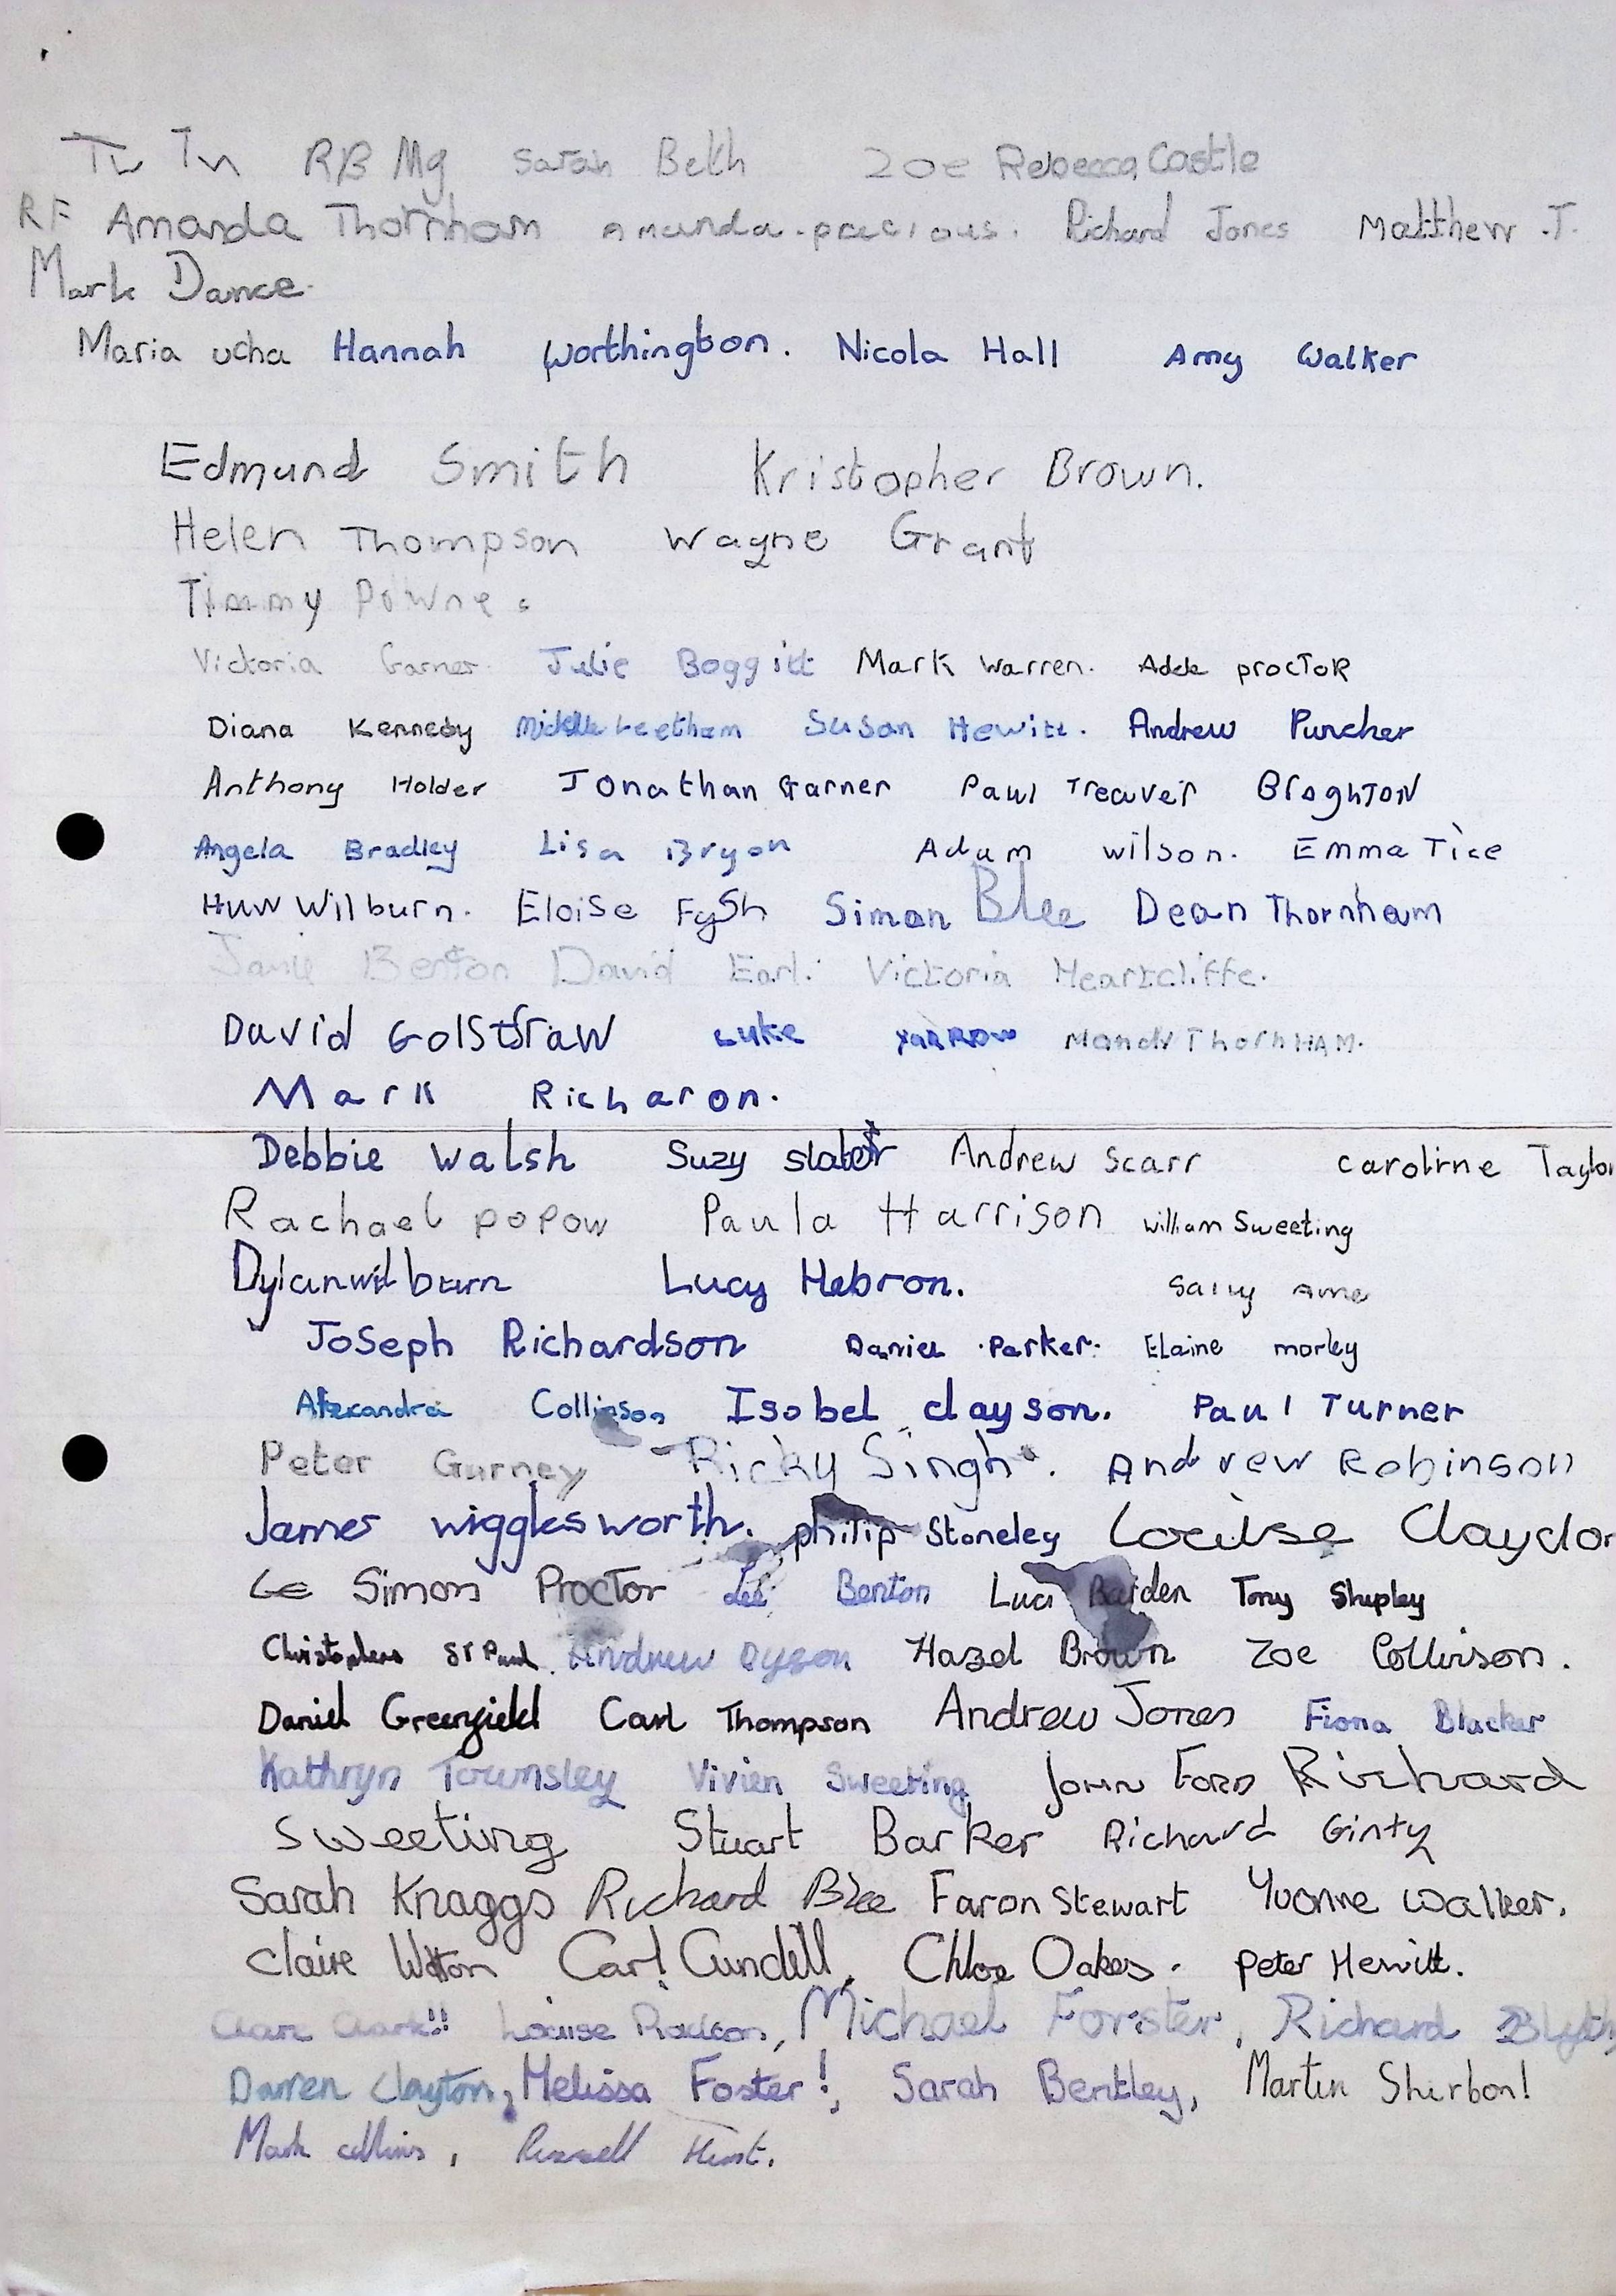 RB Mg Sarah Bekh Zoe Rebecca Castle
RF Amanda Thornham amanda.precious. Richard Jones Matthew .J.
Mark Dance.
Maria ucha Hannah Worthington. Nicola Hall Amy Walker
Edmund Smith Kristopher Brown.
Helen Thompson Wayne Grant
Timmy Powne.
Victoria Garner. Julie Boggitt Mark Warren. Adele procToR
Diana Kennedy Michelle Leetham Susan Hewitt. Andrew Puncher
Anthony Holder Jonathan Garner Paul Treaver BroghTON
Angela Bradley Lisa Bryon Adam wilson. Emma Tice
Huw Wilburn. Eloise Fysh Simon Blee Dean Thornham
Jamie Benton David Earl. Victoria Heartcliffe.
David Golstraw Luke YARROW Mandy ThornHAM.
Mark Richaron.
Debbie Walsh Suzy slater Andrew Scarr Caroline Taylor
Rachael popow Paula Harrison William Sweeting
Dylan wilburn Lucy Hebron. Sally Ame
Joseph Richardson Daniel Parker. Elaine morley
Alexandra Collinson Isobel clayson. Paul Turner
Peter Gurney Ricky Singh. Andrew Robinson
James wigglesworth. philip Stoneley Louise Claydon
Simon Proctor Lee Benton Luci Barden Tony Shipley
Christopher St Paul. Andrew Dyson Hazel Brown Zoe Collinson.
Daniel Greenfield Carl Thompson Andrew Jones Fiona Blacker
Kathryn Townsley Vivien Sweeting John Ford Richard
Sweeting Stuart Barker Richard Ginty
Sarah Knaggs Richard Blee Faron Stewart Yvonne Walker.
Claire Witton Carl Cundill, Chloe Oakes. Peter Hewitt.
Clare Clark!! Louise , Michael Forster, Richard Blyth
Darren Clayton, Melissa Foster!, Sarah Bentley, Martin Sherbon!
Mark collins, Russell Hunt.